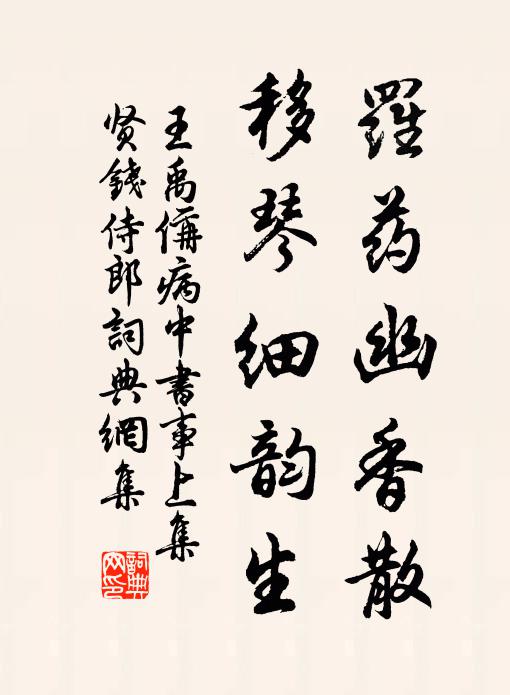 羅药幽香散
移琴细韵生
王禹偁病中書事上集
贤錢侍郎詞典網集
詞典网印